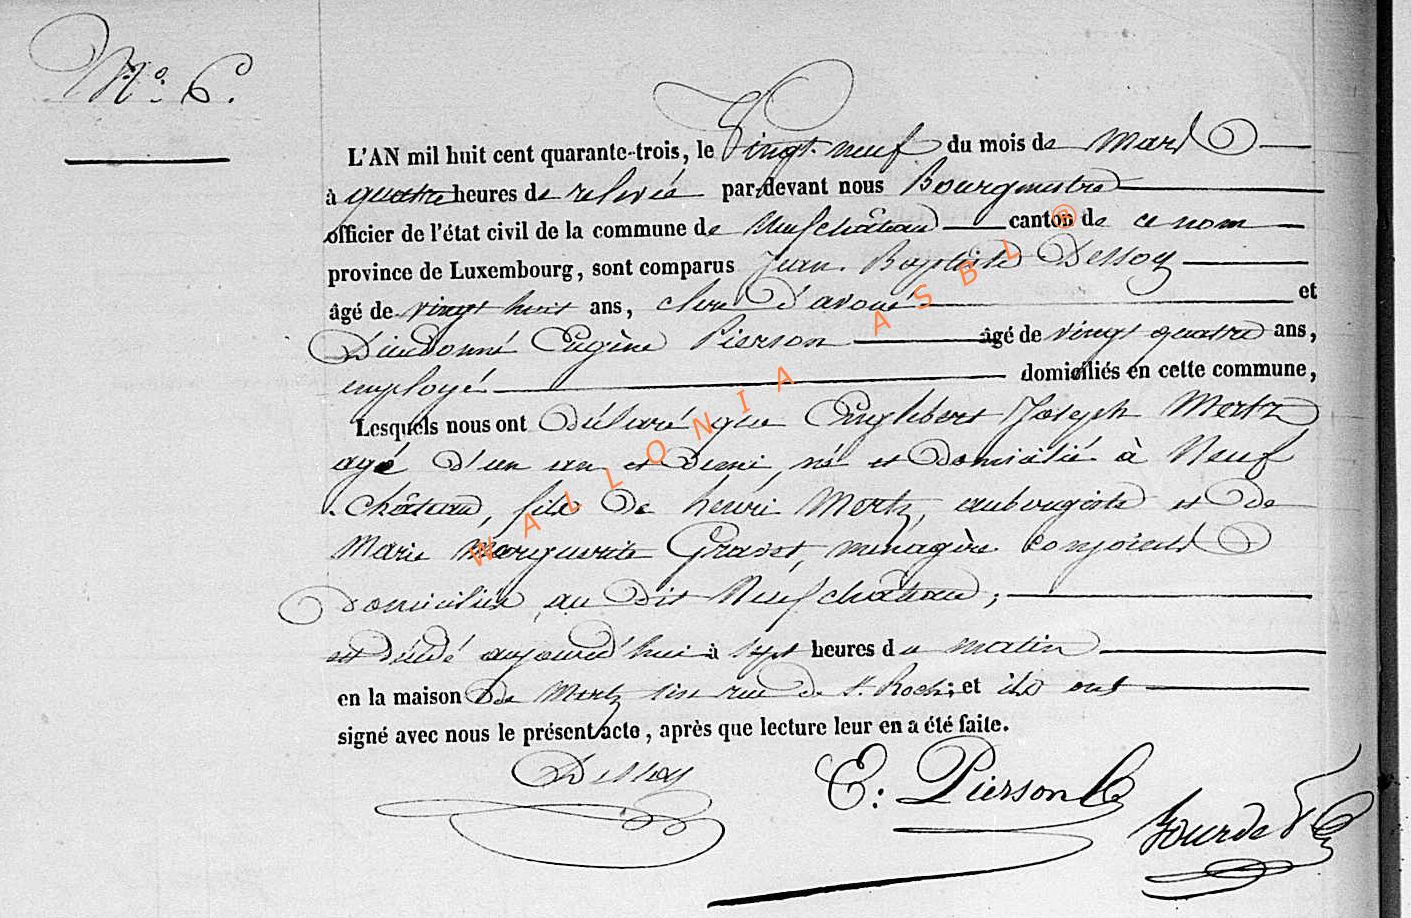 N.° 6.
L'AN mil huit cent quarante-trois, le Vingt neuf du mois de Mars
à quatre heures de relevée par-devant nous Bourgmestre
officier de l'état civil de la commune de Neufchâteau canton de ce nom
province de Luxembourg, sont comparus Jean Baptiste Dessoy
âgé de vingt huit ans, clerc d'avoué et
Dieudonné Eugène Pierson âgé de vingt quatre ans,
employé domiciliés en cette commune,
Lesquels nous ont déclaré que Englebert Joseph Mertz
agé d'un an et demi, né et domicilié à Neuf
château, fils de henri Mertz, aubergiste et de
Marie Marguerite Gravet, menagère conjoints
domiciliés au dit Neufchâteau ;
est décédé aujourd'hui à sept heures du matin
en la maison de Mertz sise rue de St. Roch ; et ils ont
signé avec nous le présent acte, après que lecture leur en a été faite.
Dessoy
E. Pierson
WALLONIA ASBL ®